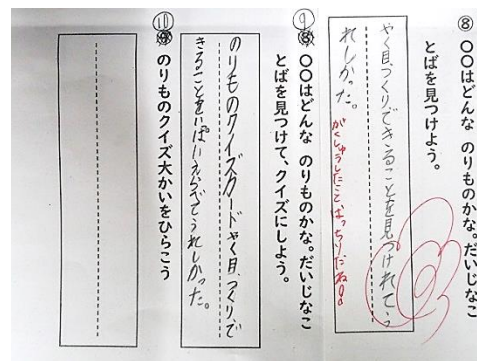 ⑧
〇〇はどんな のりものかな。だいじなこ
とばを見つけよう。
やく目、つくり、できることを見つけれて、う
れしかった。
がくしゅうしたことばっちりだね!!
⑨
〇〇はどんな のりものかな。だいじなこ
とばを見つけて、クイズにしよう。
のりものクイズカードやく目、つくり、で
きることをいぱいえらべてうれしかった。
⑩
のりものクイズ大かいをひらこう